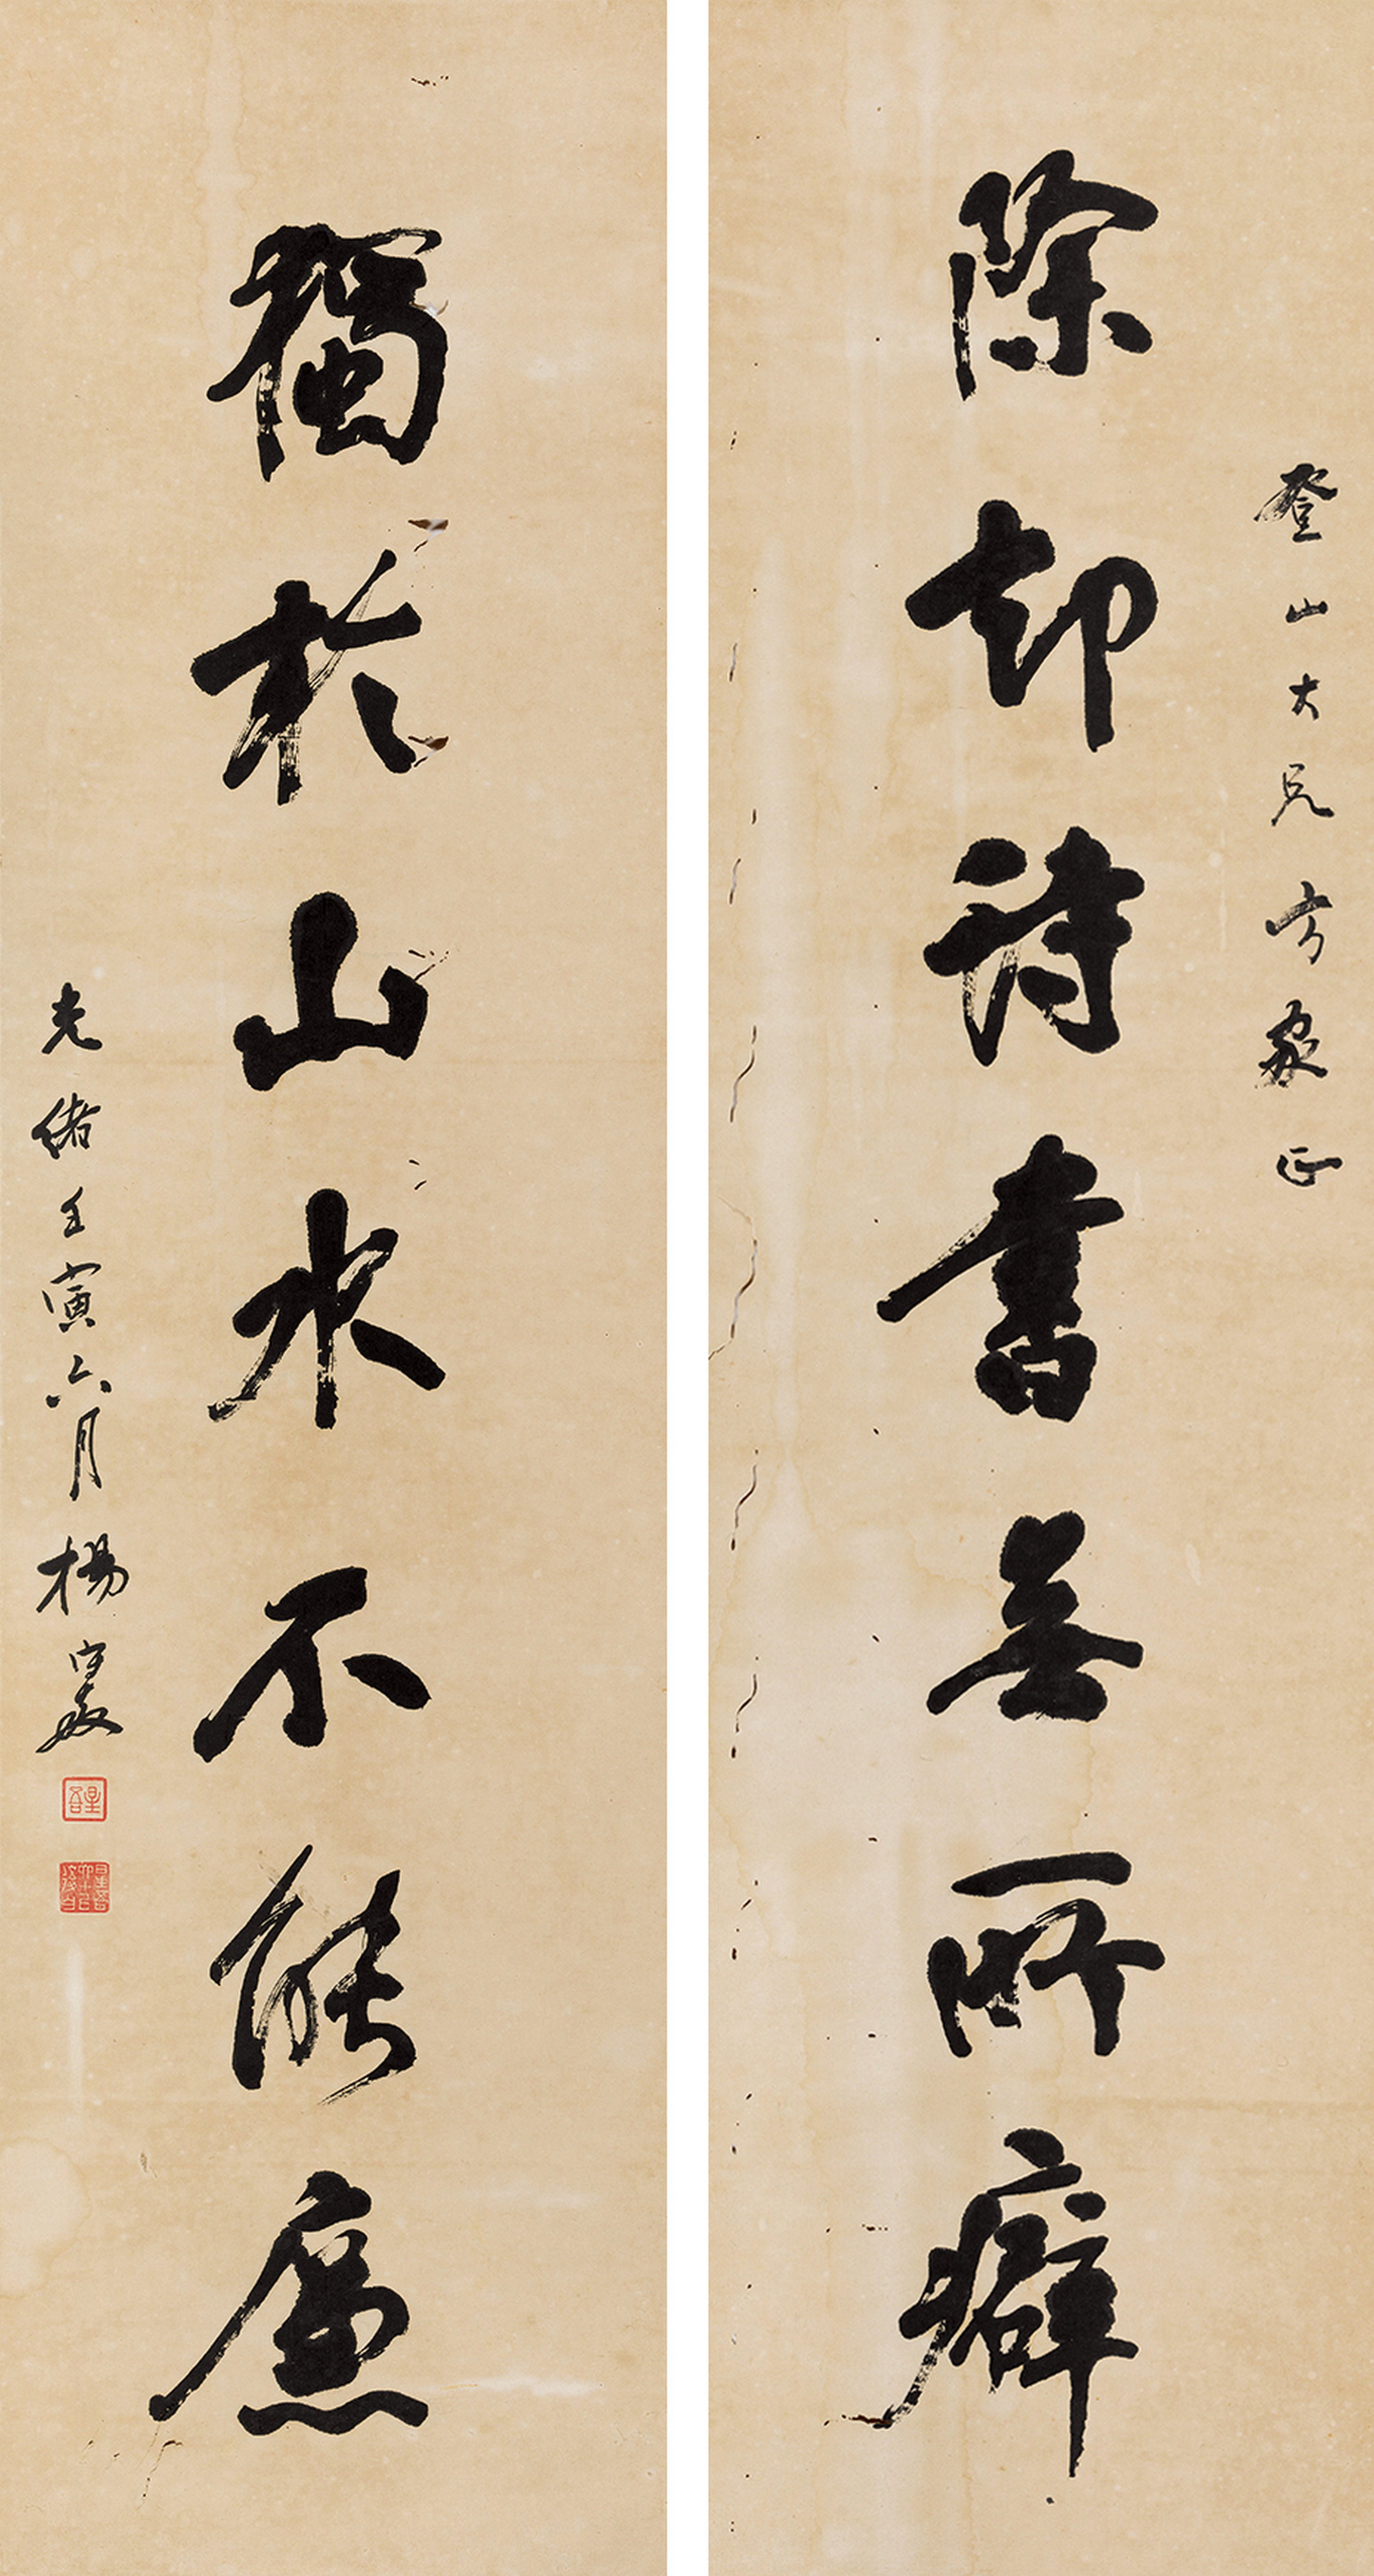 登山大兄方家正
除却詩書無所癖
獨於山水不能廉
光緒壬寅六月楊守敬
星吾